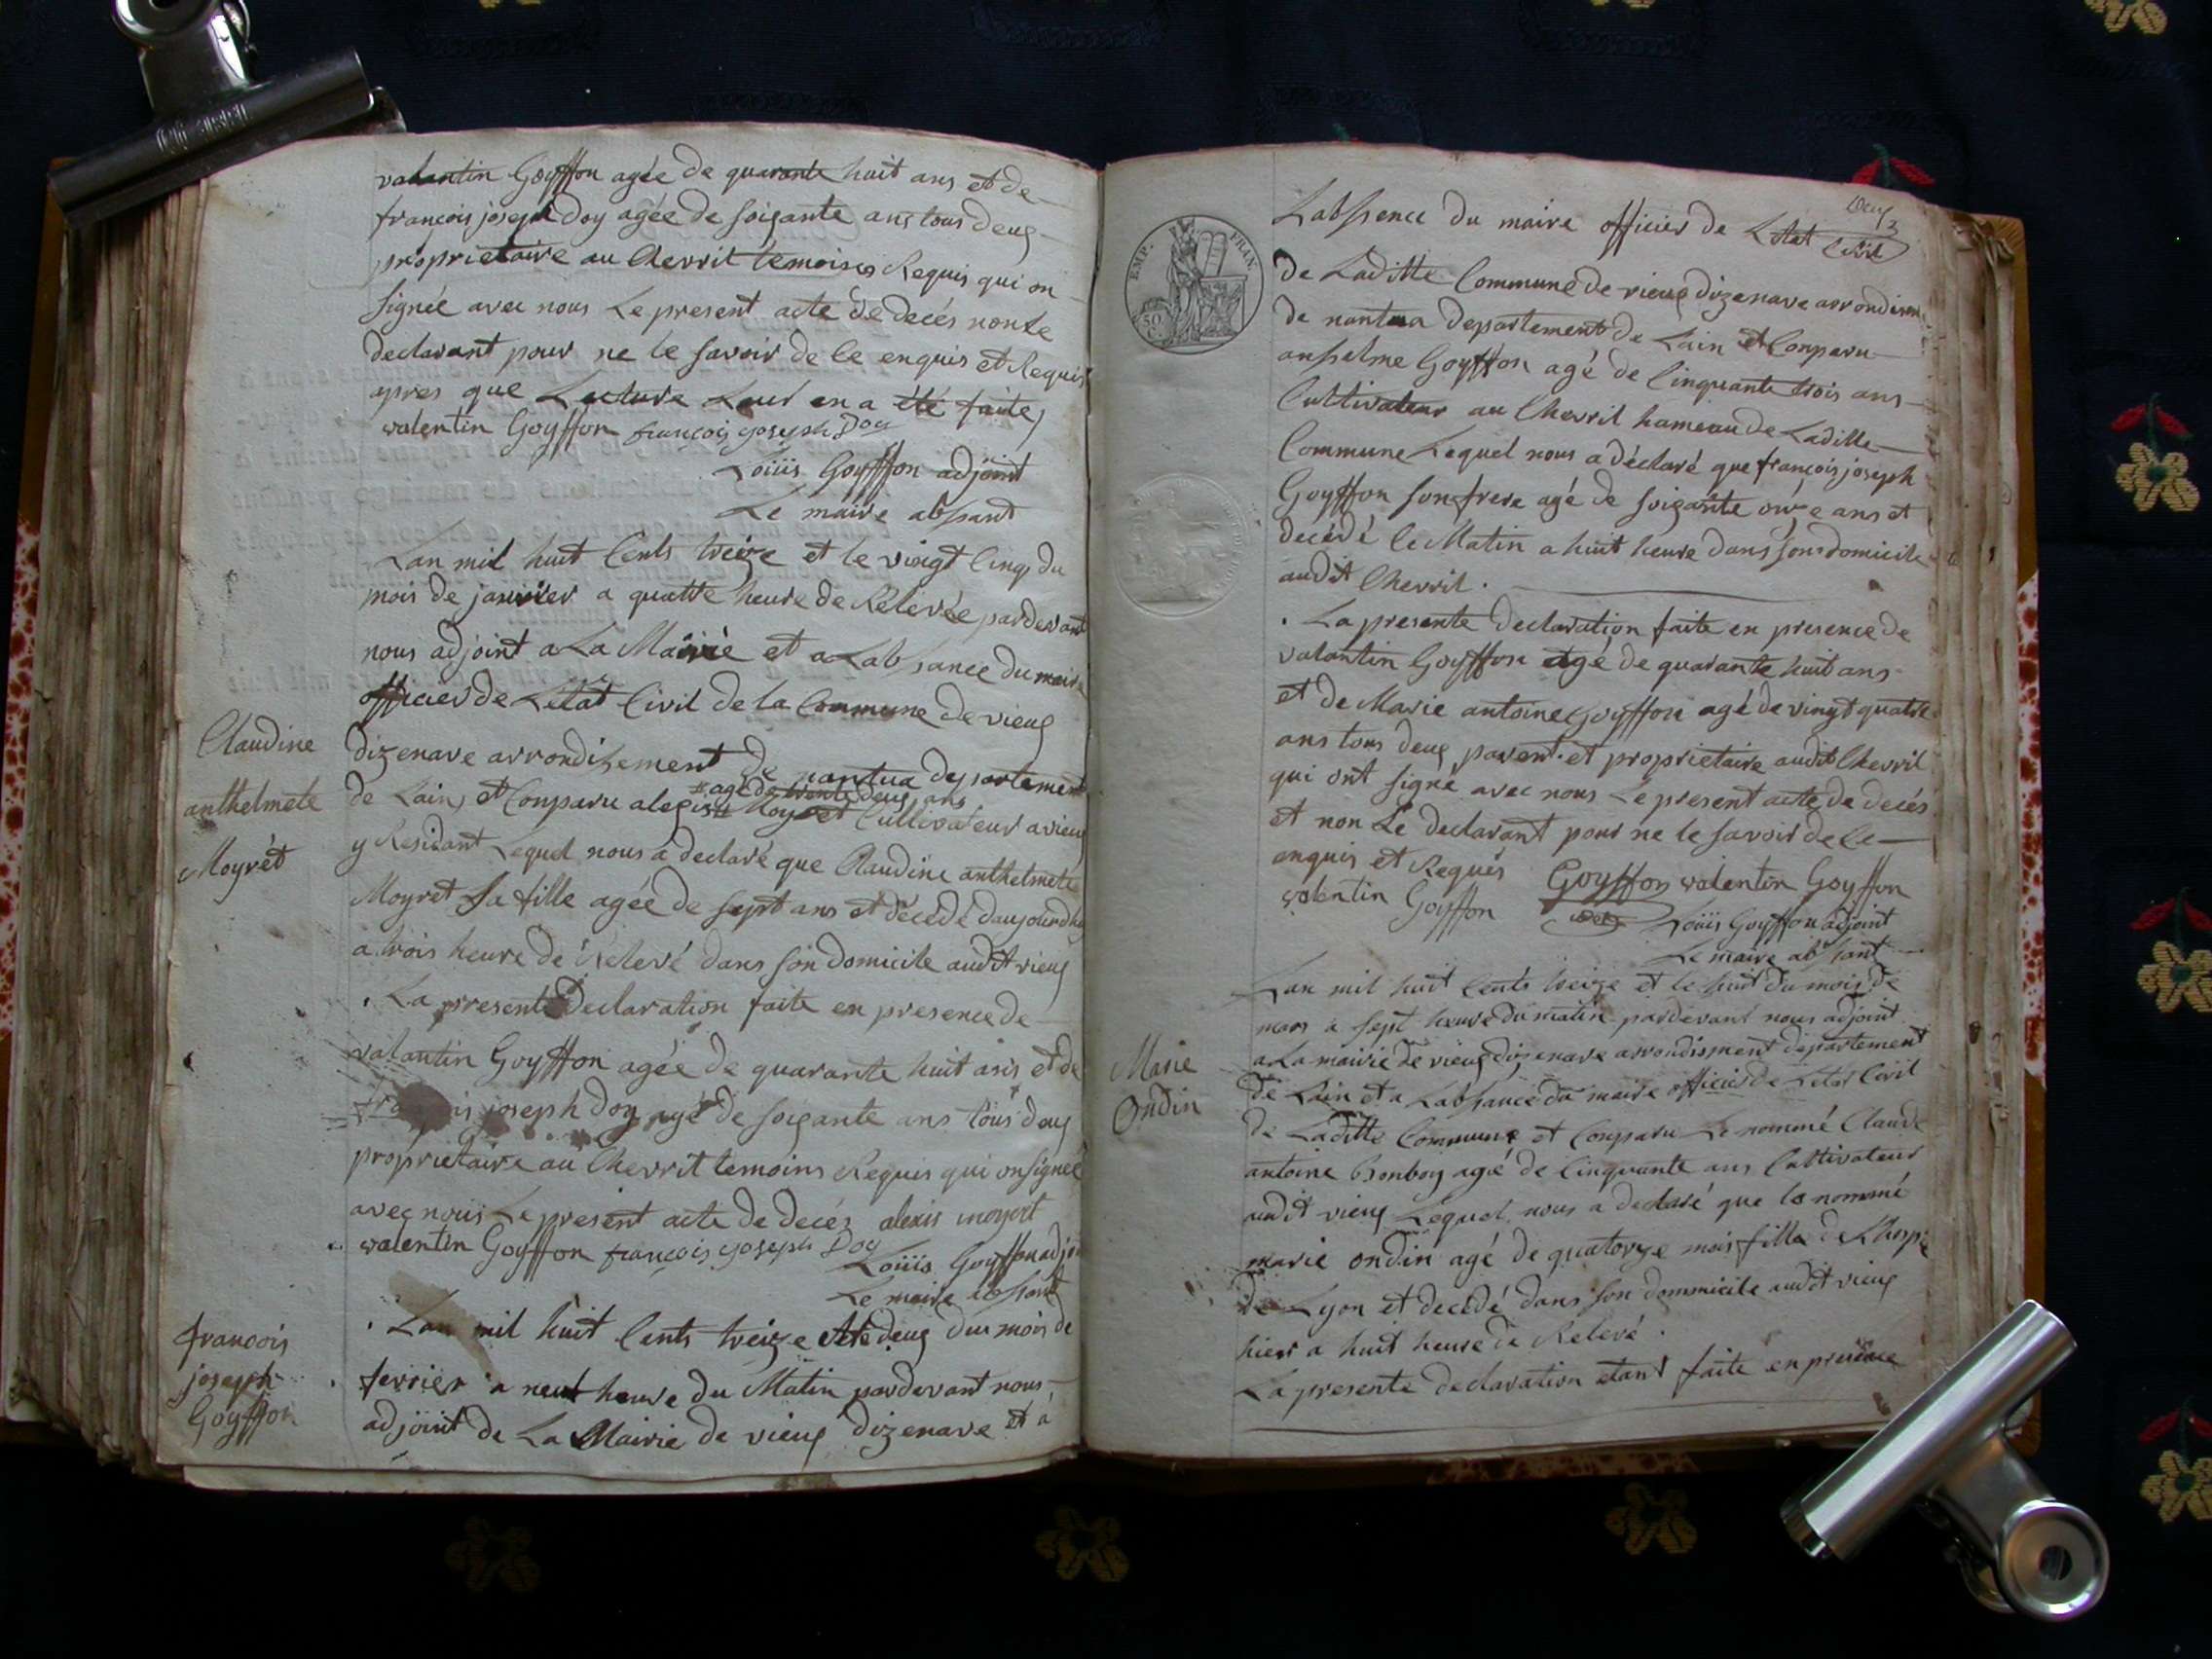 valantin Goyffon agée de quarante huit ans et de
francois joseph doy agée de soixante ans tous deux
proprietaire au Chevril temoises Requis qui on
signée avec nous Le present acte de decés non Le
declarant pour ne le savoir de ce enquis et Requis
apres que Lecture Leur en a été faite
valentin Goyffon françois joseph Doy
Loüis Goyffon adjoint
Le maire absant
Lan mil huit Cents treize et le vingt Cinq du
mois de janvier a quatte heure de Relevée pardevant
nous adjoint a La Mairie et a Labsance du maire
officier de Létat Civil de la Commune de vieux
Claudine
dizenave arrondisement de nantua departement
agé de trente deux ans
anthelmete
de Lain, et Conparu alexis Moyret Cultivateur a vieux
Moyrét
y Residant Lequel nous a declaré que Claudine anthelmete
Moyret Sa fille agée de sept ans et décédé daujourdhuy
a trois heure de Relevé dans son domicile audit vieux
. La presente Declaration faite en presence de
valantin Goyffon agée de quarante huit ans et de
joseph doy agé de soixante ans tous deux
proprietaire au Chevrit temoins Requis qui on signée
avec nous Le present acte de decés alexis moyret
valentin Goyffon françois joseph Doy
Loüis Goyffon adjoi
Le maire absant
francois
. Lan mil huit Cents treize et le deux du mois de
joseph
fevrier a neuf heure du Matin pardevant nous
Goyffon
adjoint de La Mairie de vieux dizenave et a
EMP. FRAN.
50 C.
Labssence du maire officier de Létat
Civil
de Laditte Commune de vieux dizenave arrondisem
de nantua departement de Lain et Conparu
anselme Goyffon agé de Cinquante trois ans
Cultivateur au Chevril hameau de Laditte
Commune Lequel nous a déclaré que françois joseph
Goyffon son frere agé de soixante onze ans et
decédé ce Matin a huit heure dans son domicile
audit Chevril .
. La presente declaration faite en presence de
valantin Goyffon agé de quarante huit ans
et de Marie antoine Goyffon agé de vingt quatre
ans tous deux parent et proprietaire audit Chevril
qui ont signé avec nous Le present acte de decés
et non Le declarant pour ne le savoir de ce
enquis et Requis Goyffon valentin Goyffon
valentin Goyffon
Loüis Goyffon adjoint
Le maire absant
Lan mil huit Cents treize et le huit du mois de
mars a sept heure du matin pardevant nous adjoint
Marie
a La mairie de vieux dizenave arrondisment departement
Ondin
de Lain et a Labsance du maire officier de Letat Civil
de Laditte Commune et Conparu Le nommé Claude
antoine Bonboy agé de Cinquante ans Cultivateur
audit vieux Lequel nous a declaré que la nommé
marie ondin agé de quatorze mois fille de Lhospi
de Lyon et decedé dans son dommicile audit vieux
hier a huit heure de Relevé .
La presente declaration etant faite en presence